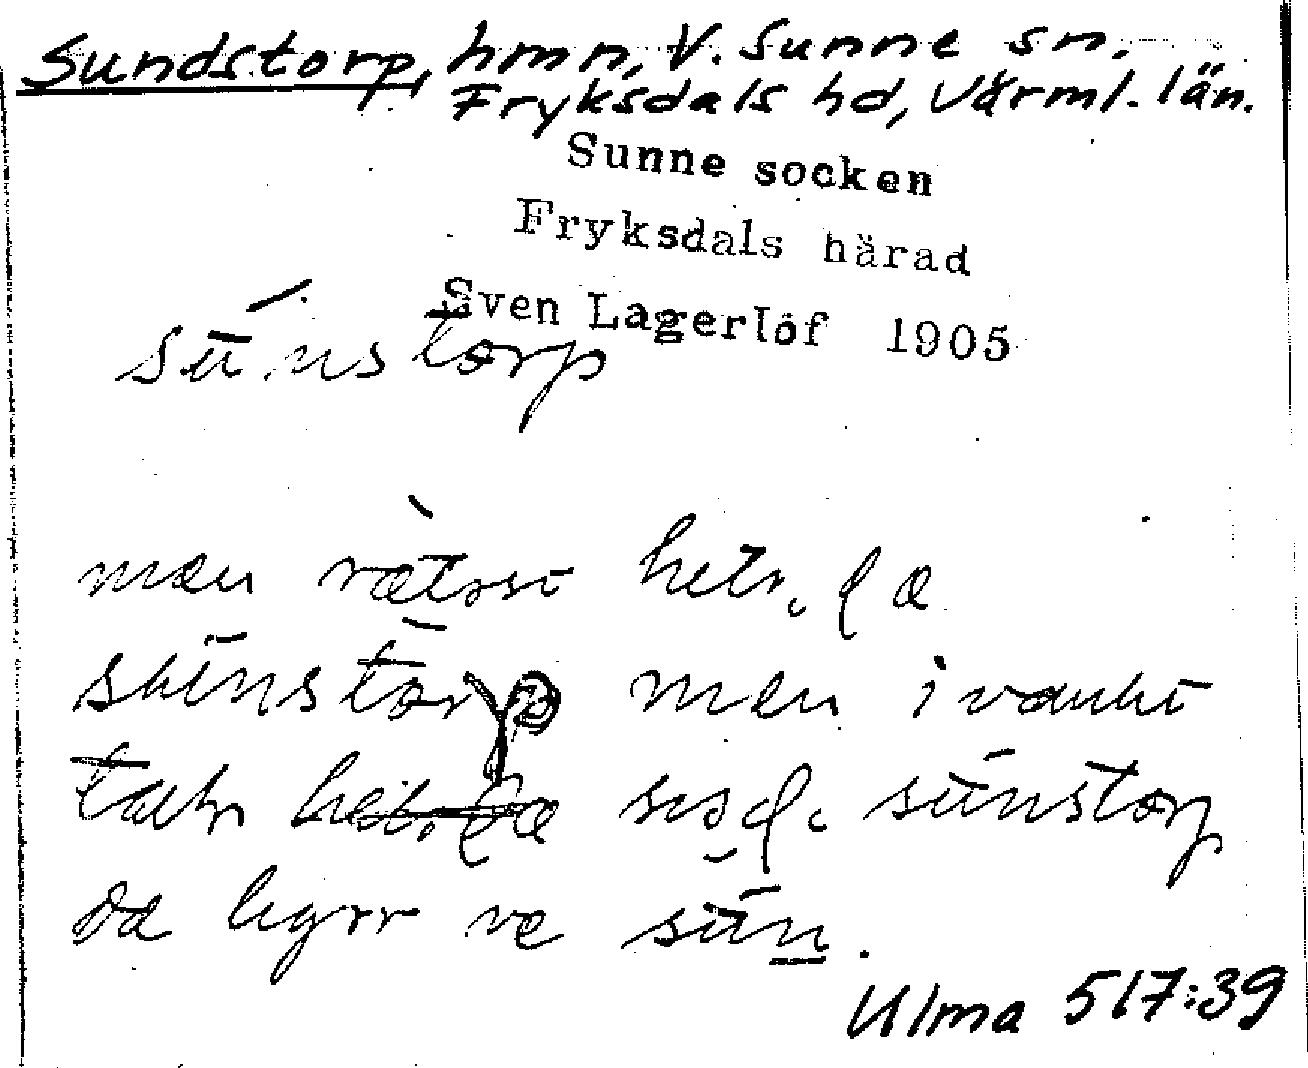 Sundstorp, hmn, V. Sunne sn.
Fryksdals hd, Värml. län.
Sunne socken
Fryksdals härad
Sven Lagerlöf 1905
sūnstorp
mæn rætɩst
sūnstorp mæn i vanlit
tal sūnstorp
dæ ligɩr ve sūn.
Ulma 517:39